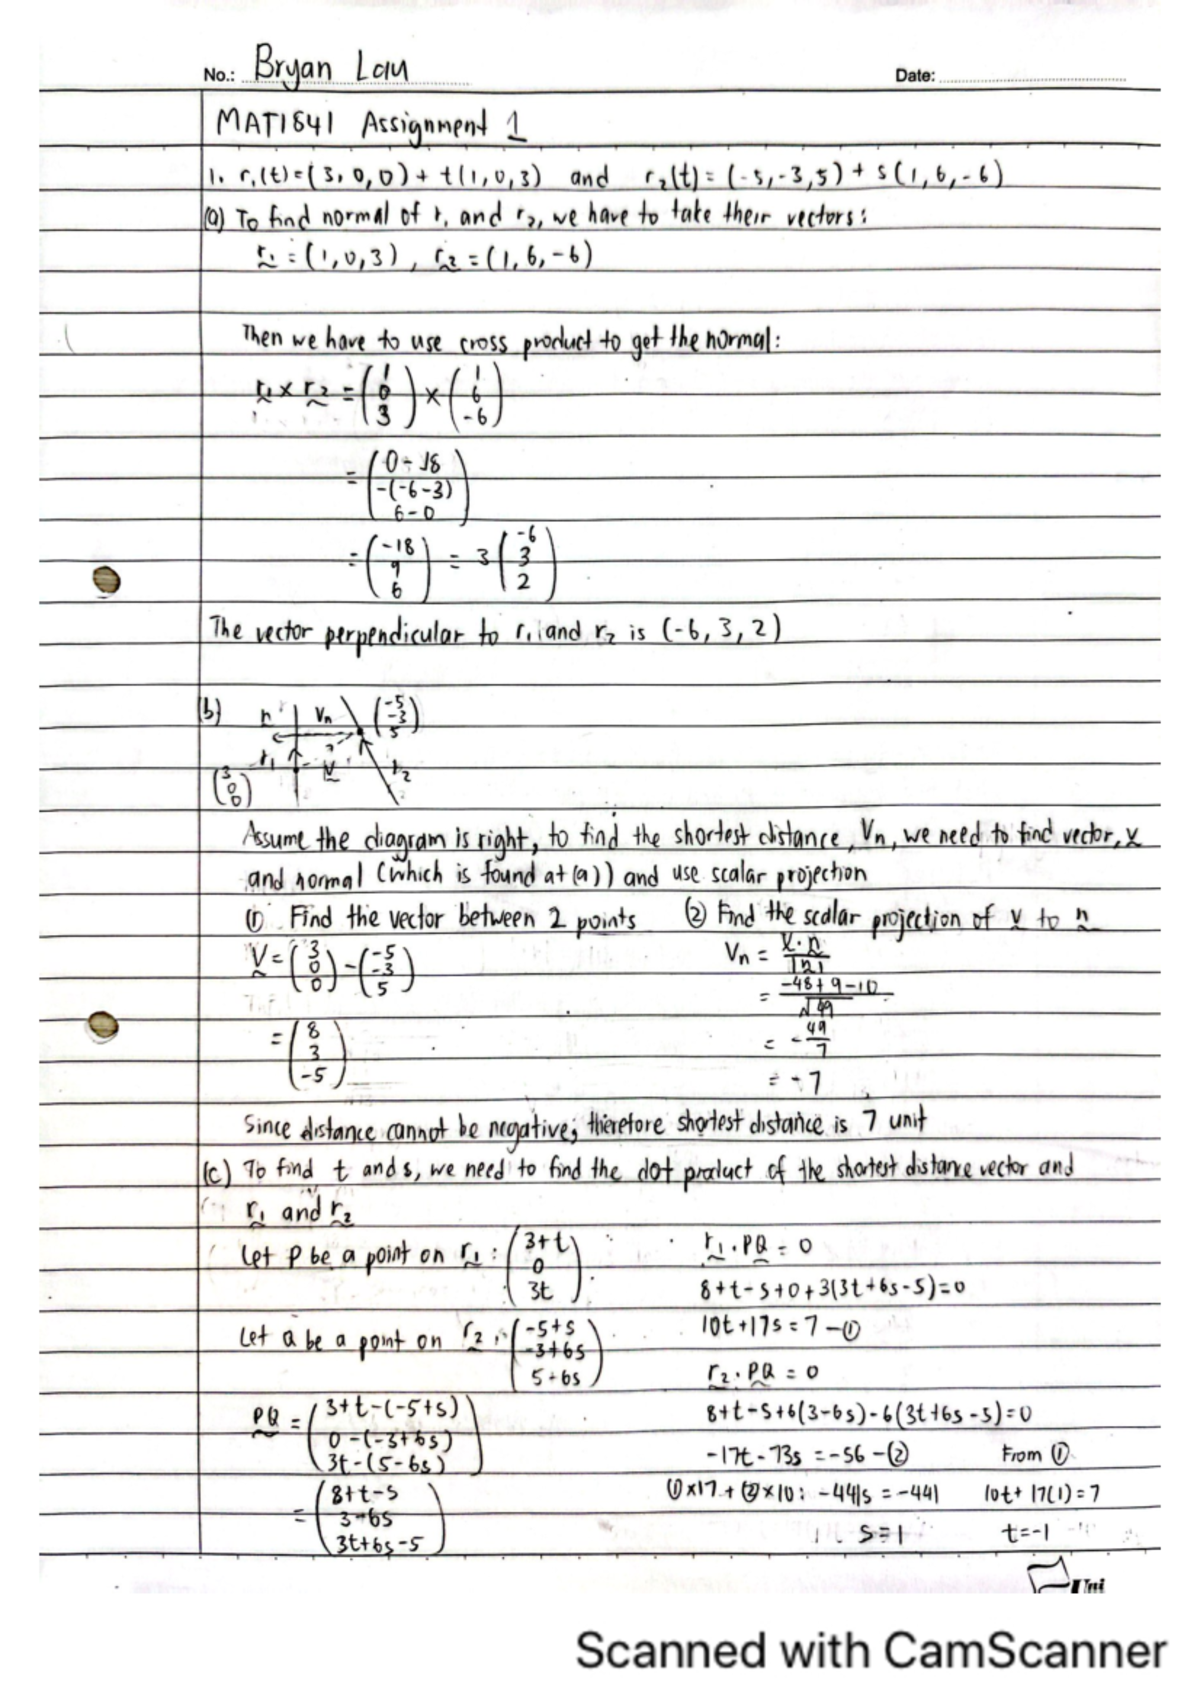 No.: Bryan Lau Date:
MAT1841 Assignment 1
1. r₁(t)=(3,0,0)+t(1,0,3) and r₂(t)=(-5,-3,5)+s(1,6,-6)
(a) To find normal of r₁ and r₂, we have to take their vectors:
r₁ = (1,0,3), r₂ = (1,6,-6)
Then we have to use cross product to get the normal:
r₁ × r₂ = (1 0 3) × (1 6 -6)
= (0-18 -(-6-3) 6-0)
= (-18 9 6) = 3 (-6 3 2)
The vector perpendicular to r₁ and r₂ is (-6,3,2)
(b) n Vn (-5 -3 5)
r₁ V r₂
(3 0 0)
Assume the diagram is right, to find the shortest distance, Vn, we need to find vector, v
and normal (which is found at (a)) and use scalar projection
(1) Find the vector between 2 points
V = (3 0 0) - (-5 -3 5)
= (8 3 -5)
(2) Find the scalar projection of v to n
Vn = v·n / |n|
= -48+9-10 / √49
= -49/7
= -7
Since distance cannot be negative; therefore shortest distance is 7 unit
(c) To find t and s, we need to find the dot product of the shortest distance vector and
r₁ and r₂
Let P be a point on r₁: (3+t 0 3t)
Let Q be a point on r₂: (-5+s -3+6s 5-6s)
PQ = (3+t-(-5+s) 0-(-3+6s) 3t-(5-6s))
= (8+t-s 3-6s 3t+6s-5)
r₁·PQ = 0
8+t-s+0+3(3t+6s-5)=0
10t+17s=7 -①
r₂·PQ = 0
8+t-s+6(3-6s)-6(3t+6s-5)=0
-17t-73s=-56 -②
①×17+②×10: -441s=-441
s=1
From ①
10t+17(1)=7
t=-1
Uni
Scanned with CamScanner